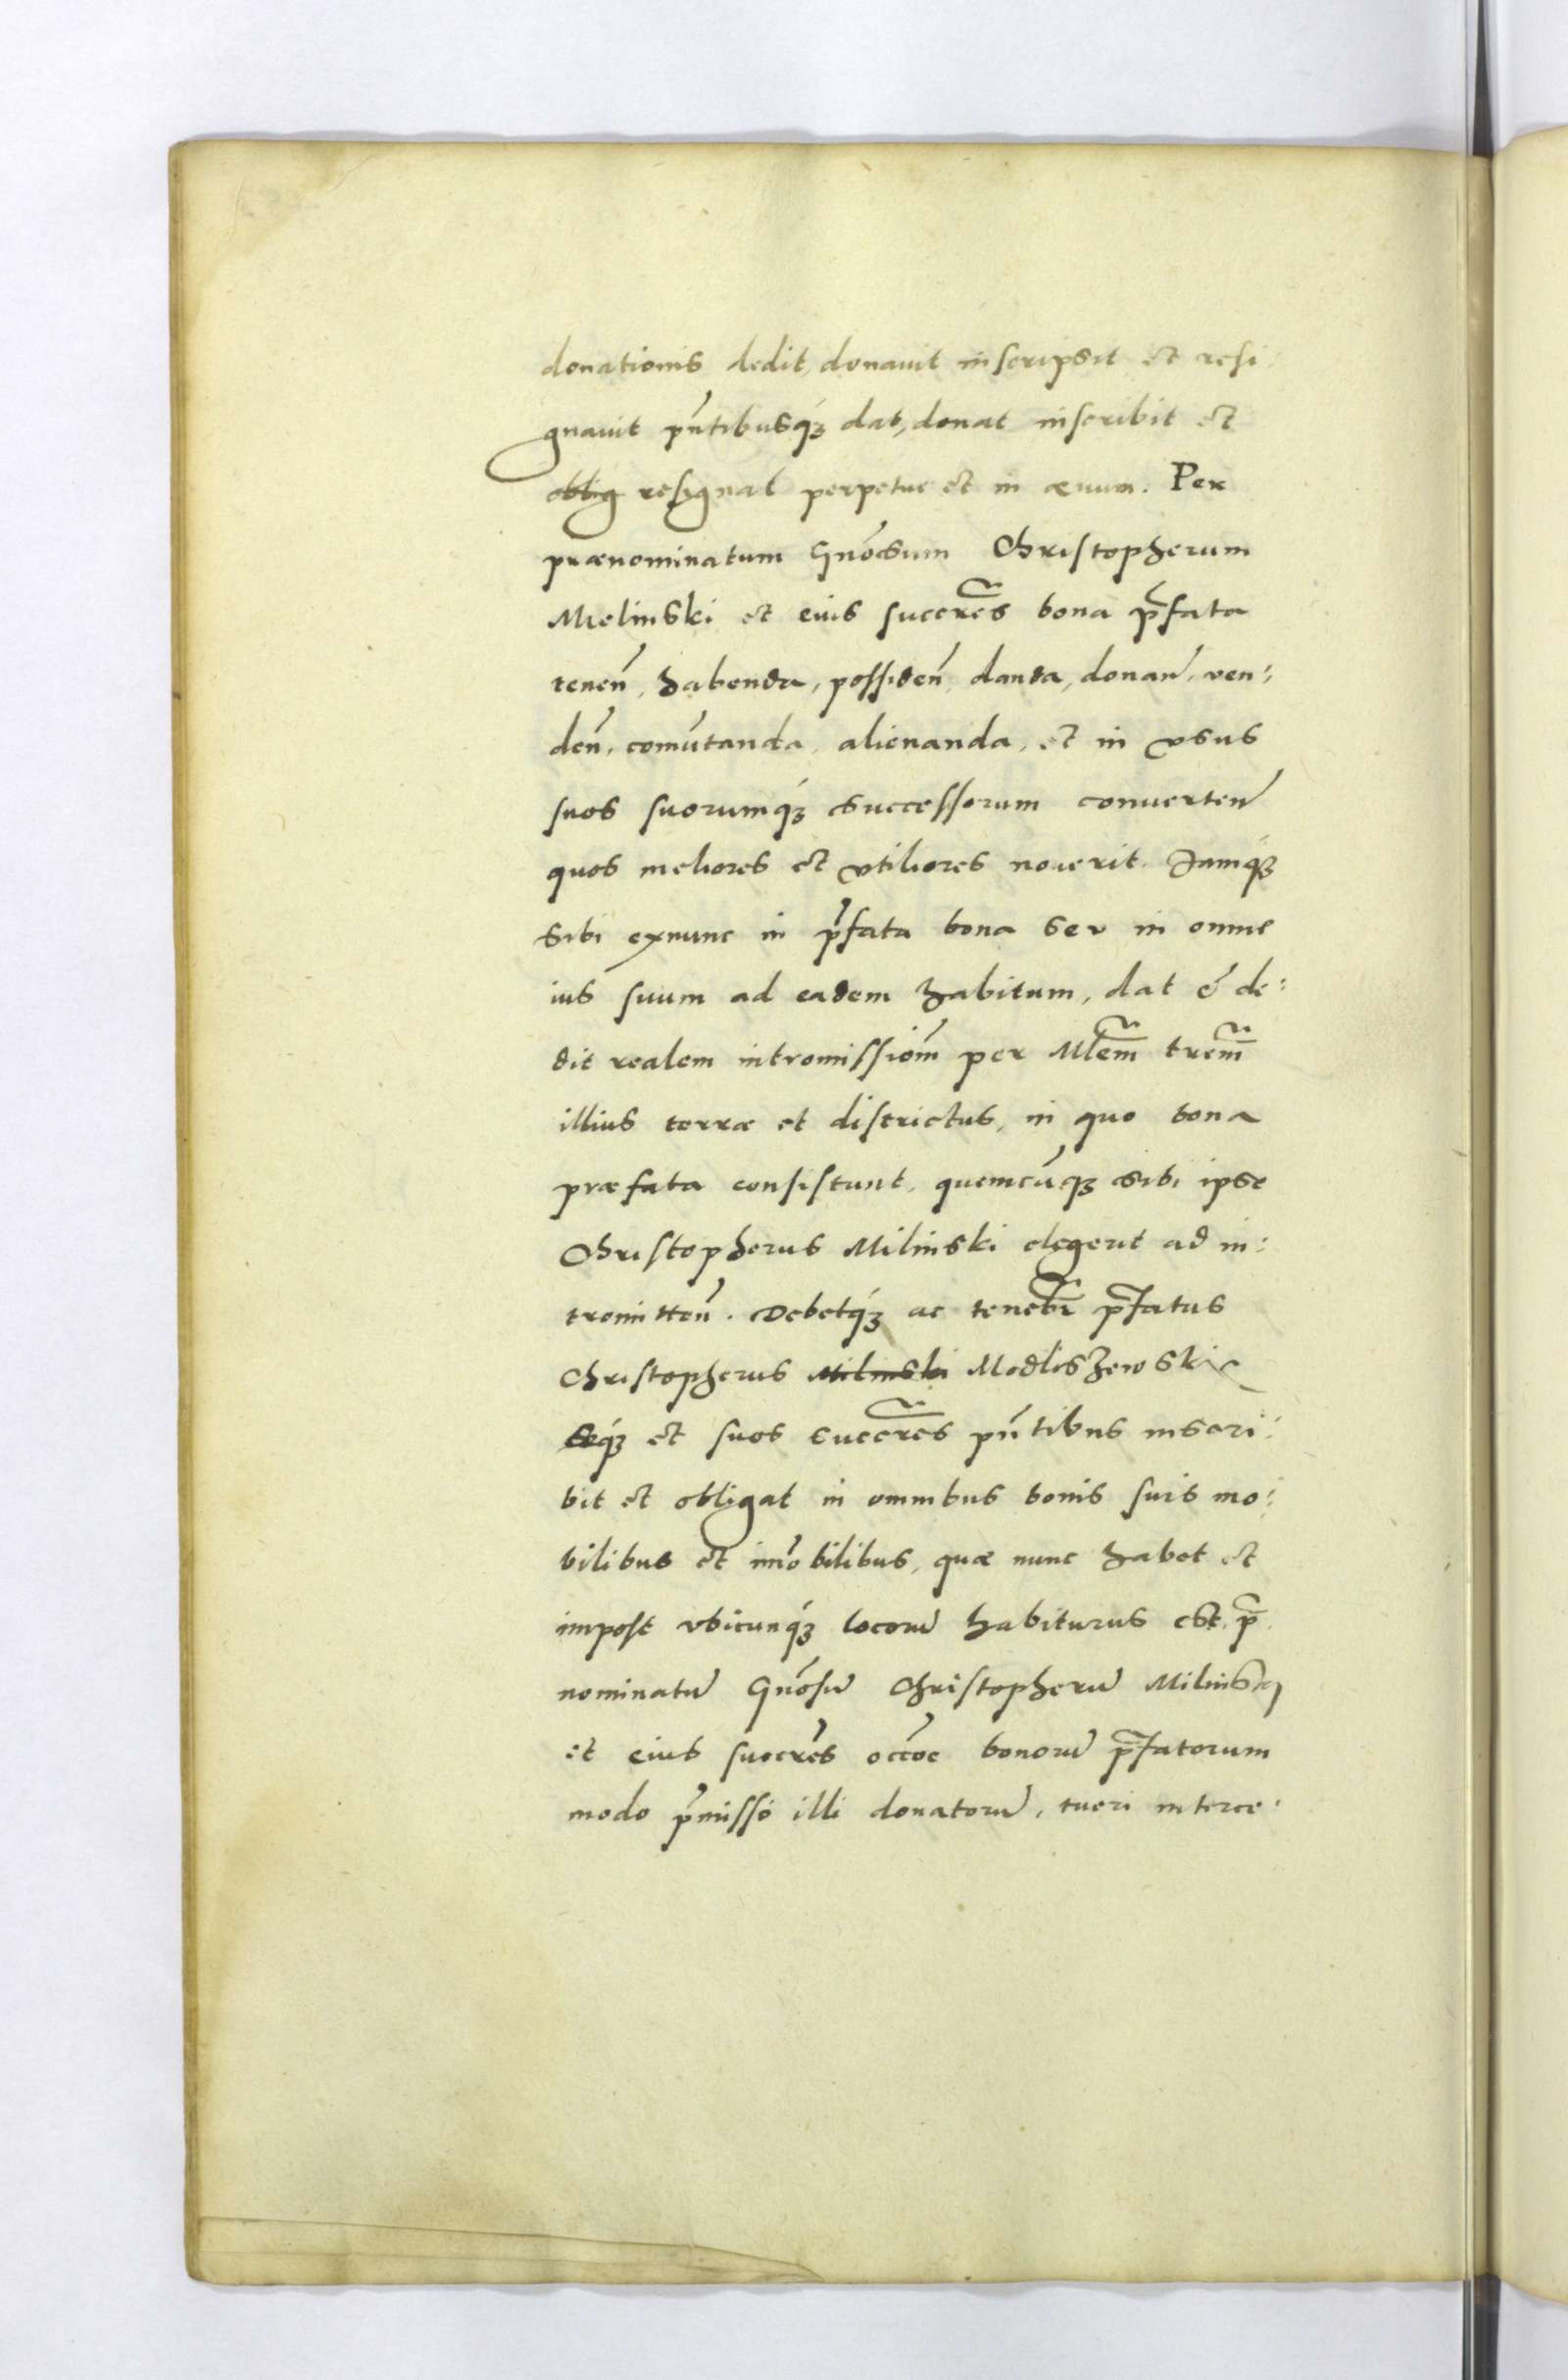 donationis dedit, donauit inscripsit et resi
gnauit pñtibusq́ꝫ dat, donat inscribit et
oblig resignat perpetue et in æuum. Per
prænominatum Gñosum Christopherum
Melinski et eius succr̃es bona p̃fata
tenen̄, habenda, possiden̄, danda, donan̄, ven:
den̄, com̄utanda, alienanda, et in vsus
suos suorumq́ꝫ successorum conuerten̄
quos meliores et vtiliores nouerit. Jamq́ꝫ
sibi exnunc in p̃fata bona seu in omne
ius suum ad eadem habitum, dat & de:
dit realem intromissiom̄ per Mlem̃ trem̃
illius terræ et districtus, in quo bona
præfata consistunt, quemcūqꝫ sibi ipse
Christopherus Milinski elegerit ad in:
tromitten̄. Debetq́ꝫ ac tenebr̃ p̃fatus
Christopherus Milinski Modliszewski
seq́ꝫ et suos succr̃es pñtibus inscri:
bit et obligat in omnibus bonis suis mo:
bilibus et im̄obilibus, quæ nunc habet et
impost vbicunq́ꝫ locorū habiturus est, p̃
nominatū Gñosū Christopherū Milinski
et eius succr̃es occ̃oe bonorū p̃fatorum
modo p̃misso illi donatorū, tueri interce: